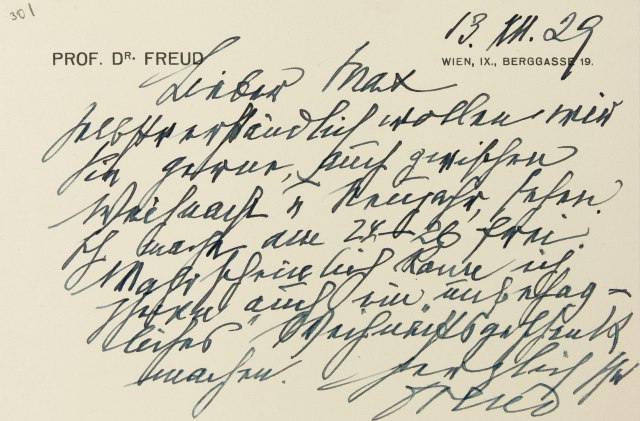 301
13. XII. 29
PROF. DR. FREUD
WIEN, IX., BERGGASSE 19.
Lieber Max
Selbstverständlich wollen wir
Sie gerne, auch zwischen
Weihnacht u Neujahr, sehen.
Ich mache am 24–26 frei.
Wahrscheinlich kann ich
Ihnen auch ein unbehag-
liches Weihnachtsgeschenk
machen.
Herzlich Ihr
Freud